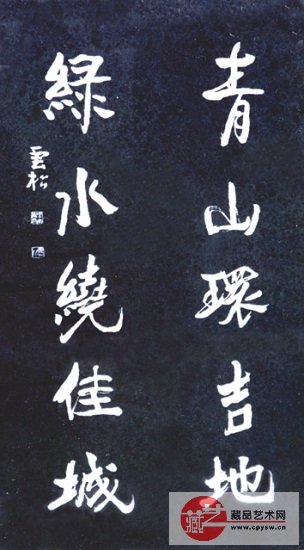 青山環吉地
綠水繞佳城
雲松
藏品艺术网
www.cpysw.cn